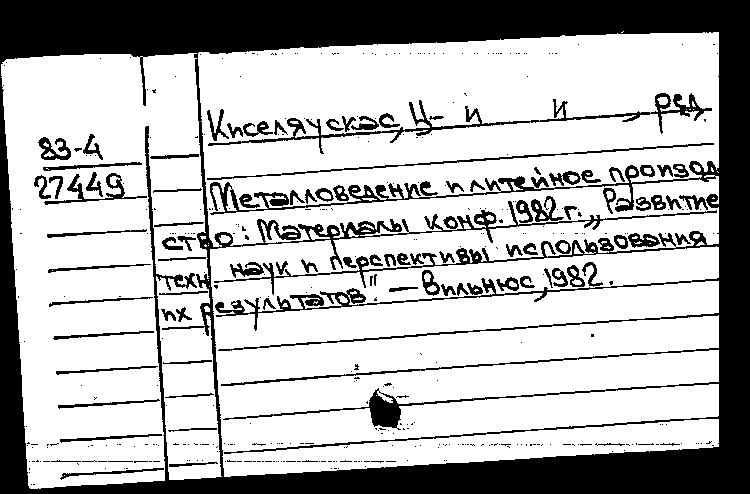 Киселяускас, Ц- и и , ред.
83-4
27449
Металловедение и литейное производ
ство: Материалы конф. 1982 г. „Развитие
техн. наук и перспективы использования
их результатов". — Вильнюс, 1982.